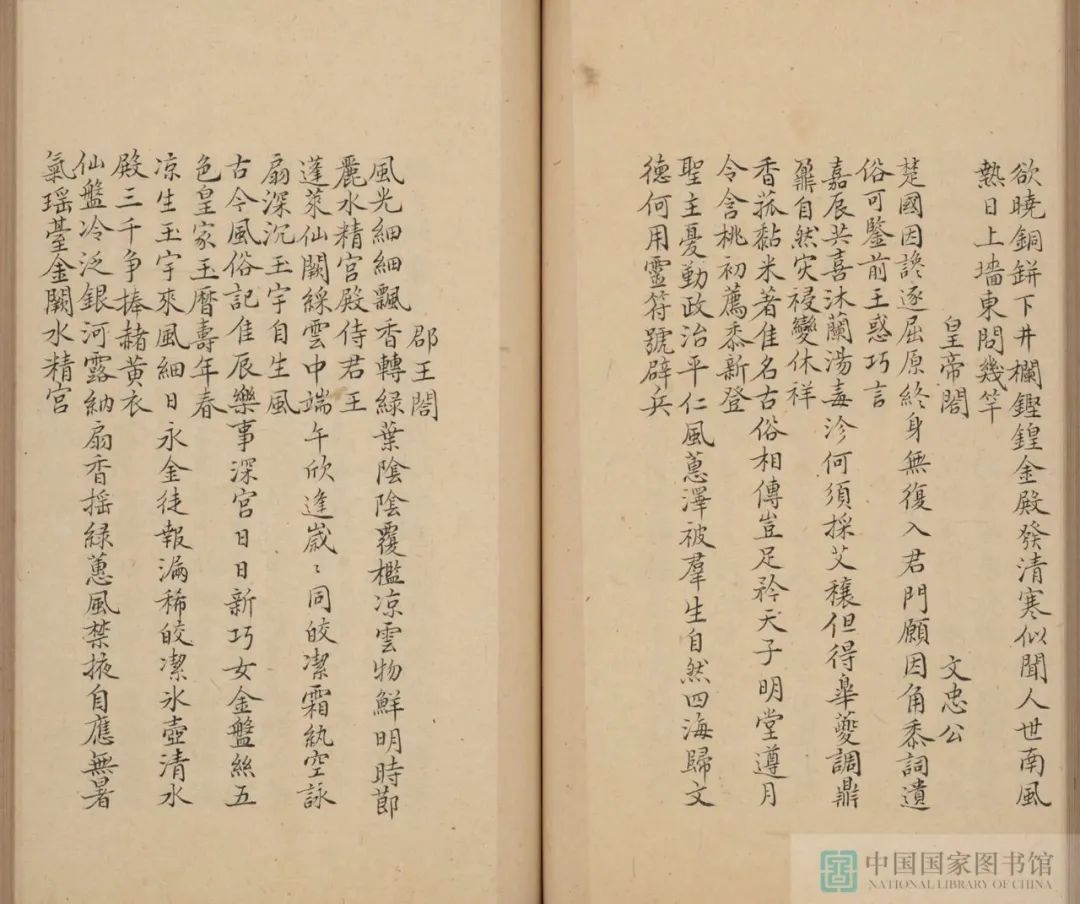 欲曉銅缾下井欄鏗鍠金殿發清寒似聞人世南風
熱日上墻東問幾竿
皇帝閤
文忠公
楚國因讒逐屈原終身無復入君門願因角黍詞遺
俗可鑒前王惑巧言
嘉辰共喜沐蘭湯毒沴何須採艾穰但得皋夔調鼎
鼐自然灾祲變休祥
香菰黏米著佳名古俗相傳豈足矜天子明堂遵月
令含桃初薦黍新登
聖主憂勤政治平仁風蕙澤被羣生自然四海歸文
德何用靈符號辟兵
郡王閤
風光細細飄香轉綠葉陰陰覆檻凉雲物鮮明時節
麗水精宮殿侍君王
蓬萊仙闕綵雲中端午欣逢歲〻同皎潔霜紈空詠
扇深沉玉宇自生風
古今風俗記佳辰樂事深宮日日新巧女金盤絲五
色皇家玉曆壽年春
凉生玉宇來風細日永金徒報漏稀皎潔氷壺清水
殿三千争捧赭黃衣
仙盤冷泛銀河露納扇香摇綠蕙風禁掖自應無暑
氣瑶臺金闕水精宮
中国国家图书馆
NATIONAL LIBRARY OF CHINA